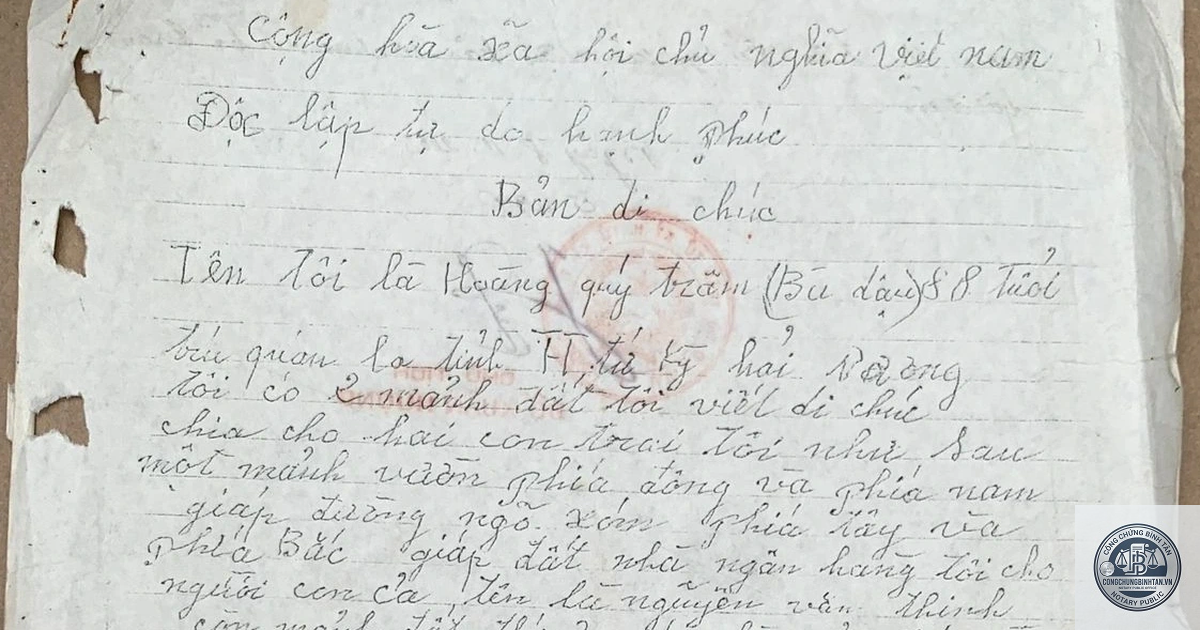 Cộng hòa xã hội chủ nghĩa việt nam
Độc lập tự do hạnh phúc
Bản di chúc
Tên tôi là Hoàng quý trầm (Bù dậu) 88 tuổi
trú quán la tỉnh TT tứ kỳ hải Dương
tôi có 2 mảnh đất tôi viết di chúc
chia cho hai con trai tôi như sau
một mảnh vườn phía đông và phía nam
giáp đường ngõ xóm phía tây và
phía Bắc giáp đất nhà ngân hàng tôi cho
người con cả tên là nguyễn văn thinh
còn mảnh đất
CÔNG CHỨNG BÌNH TÂN
CONGCHUNGBINHTAN.VN
NOTARY PUBLIC OFFICE
NOTARY PUBLIC